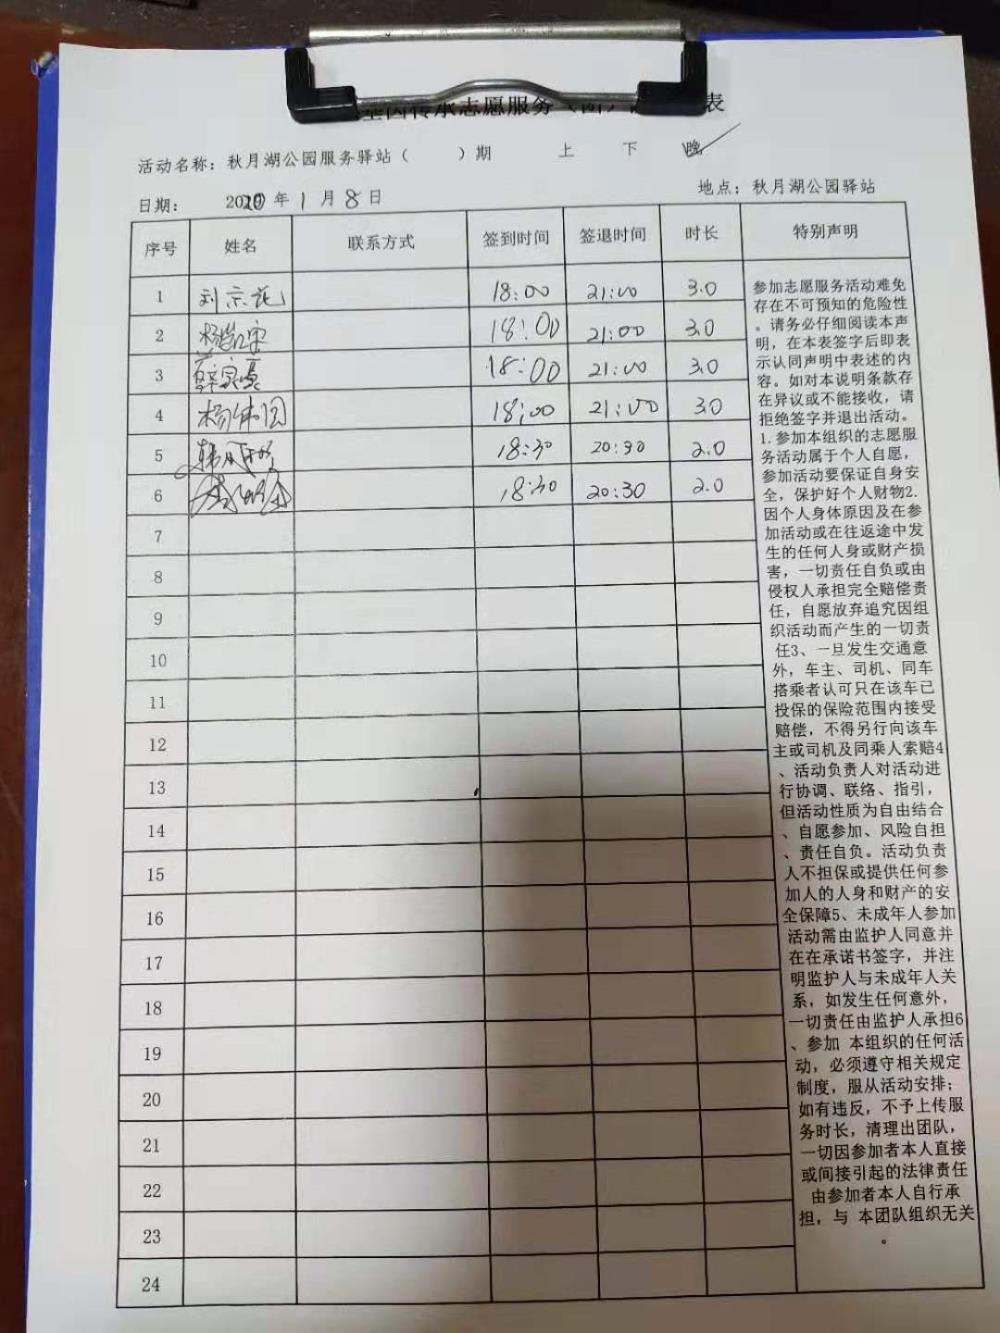 基因传承志愿服务
表
活动名称：秋月湖公园服务驿站（ ）期 上 下 晚
日期： 2020年1月8日 地点：秋月湖公园驿站
序号 姓名 联系方式 签到时间 签退时间 时长 特别声明
1 18:00 21:00 3.0
2 18:00 21:00 3.0
3 蔡家豪 18:00 21:00 3.0
4 18:00 21:00 3.0
5 18:30 20:30 2.0
6 18:30 20:30 2.0
7
8
9
10
11
12
13
14
15
16
17
18
19
20
21
22
23
24
参加志愿服务活动难免
存在不可预知的危险性
。请务必仔细阅读本声
明，在本表签字后即表
示认同声明中表述的内
容。如对本说明条款存
在异议或不能接收，请
拒绝签字并退出活动。
1.参加本组织的志愿服
务活动属于个人自愿，
参加活动要保证自身安
全，保护好个人财物2.
因个人身体原因及在参
加活动或在往返途中发
生的任何人身或财产损
害，一切责任自负或由
侵权人承担完全赔偿责
任，自愿放弃追究因组
织活动而产生的一切责
任3、一旦发生交通意
外，车主、司机、同车
搭乘者认可只在该车已
投保的保险范围内接受
赔偿，不得另行向该车
主或司机及同乘人索赔4
、活动负责人对活动进
行协调、联络、指引，
但活动性质为自由结合
、自愿参加、风险自担
、责任自负。活动负责
人不担保或提供任何参
加人的人身和财产的安
全保障5、未成年人参加
活动需由监护人同意并
在在承诺书签字，并注
明监护人与未成年人关
系，如发生任何意外，
一切责任由监护人承担6
、参加 本组织的任何活
动，必须遵守相关规定
制度，服从活动安排；
如有违反，不予上传服
务时长，清理出团队，
一切因参加者本人直接
或间接引起的法律责任
由参加者本人自行承
担，与 本团队组织无关
。